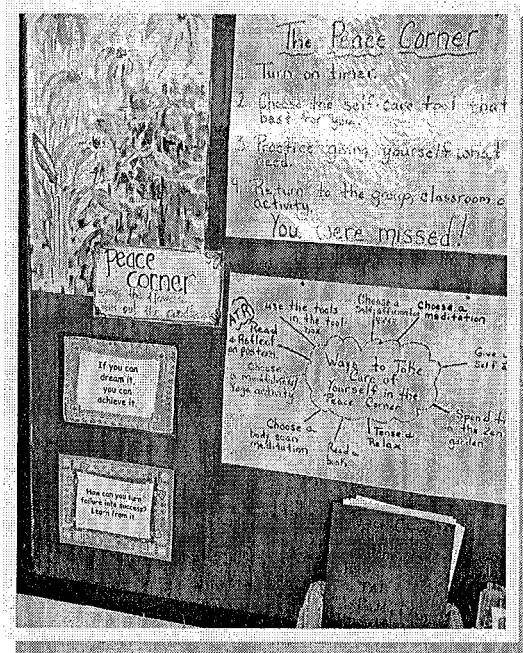 The Peace Corner
1. Turn on timer.
2. Choose the self-care tool that
best for you.
3. Practice giving yourself what
need.
4. Return to the group, classroom o
activity.
You were missed!
Peace
corner
out the candle
If you can
dream it,
you can
achieve it.
How can you turn
failure into success?
Learn from it.
Ways to Take
Care of
Yourself in the
Peace Corner
ATR
Read
& Reflect
on posters
Use the tools
in the tool
box
Choose a
Self-affirmation
Choose a
meditation
Give
Self
Spend t
in the Zen
garden
Tense &
Relax
Read a
book
Choose a
body scan
meditation
Choose
a mindfulness/
Yoga activity